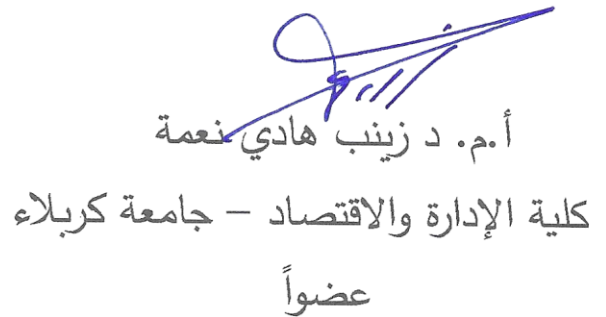 أ.م. د زينب هادي نعمة
كلية الإدارة والاقتصاد – جامعة كربلاء
عضواً